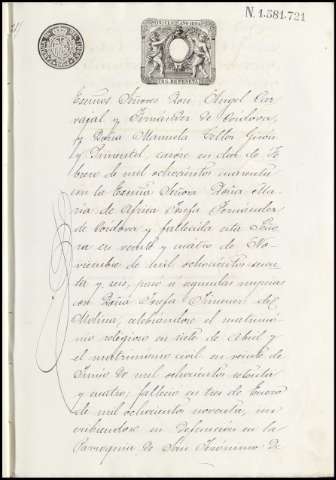 N. 1.581.721
Excmos Señores Don Angel Car-
vajal y Fernández de Cordova,
y Doña Manuela Tellez Girón
y Pimentel, casose en dos de Fe-
brero de mil ochocientos cuarenta
con la Excma Señora Doña Ma-
ria de Africa Josefa Fernández
de Cordova y fallecida esta Seño-
ra en veinte y cuatro de No-
viembre de mil ochocientos sesen-
ta y seis, pasó a segundas nupcias
con Doña Josefa Jimenez de
Molina, celebrándose el matrimo-
nio religioso en siete de Abril y
el matrimonio civil en veinte de
Junio de mil ochocientos setenta
y cuatro; falleció en tres de Enero
de mil ochocientos noventa, ins-
cribiendose su defunción en la
Parroquia de San Jerónimo de